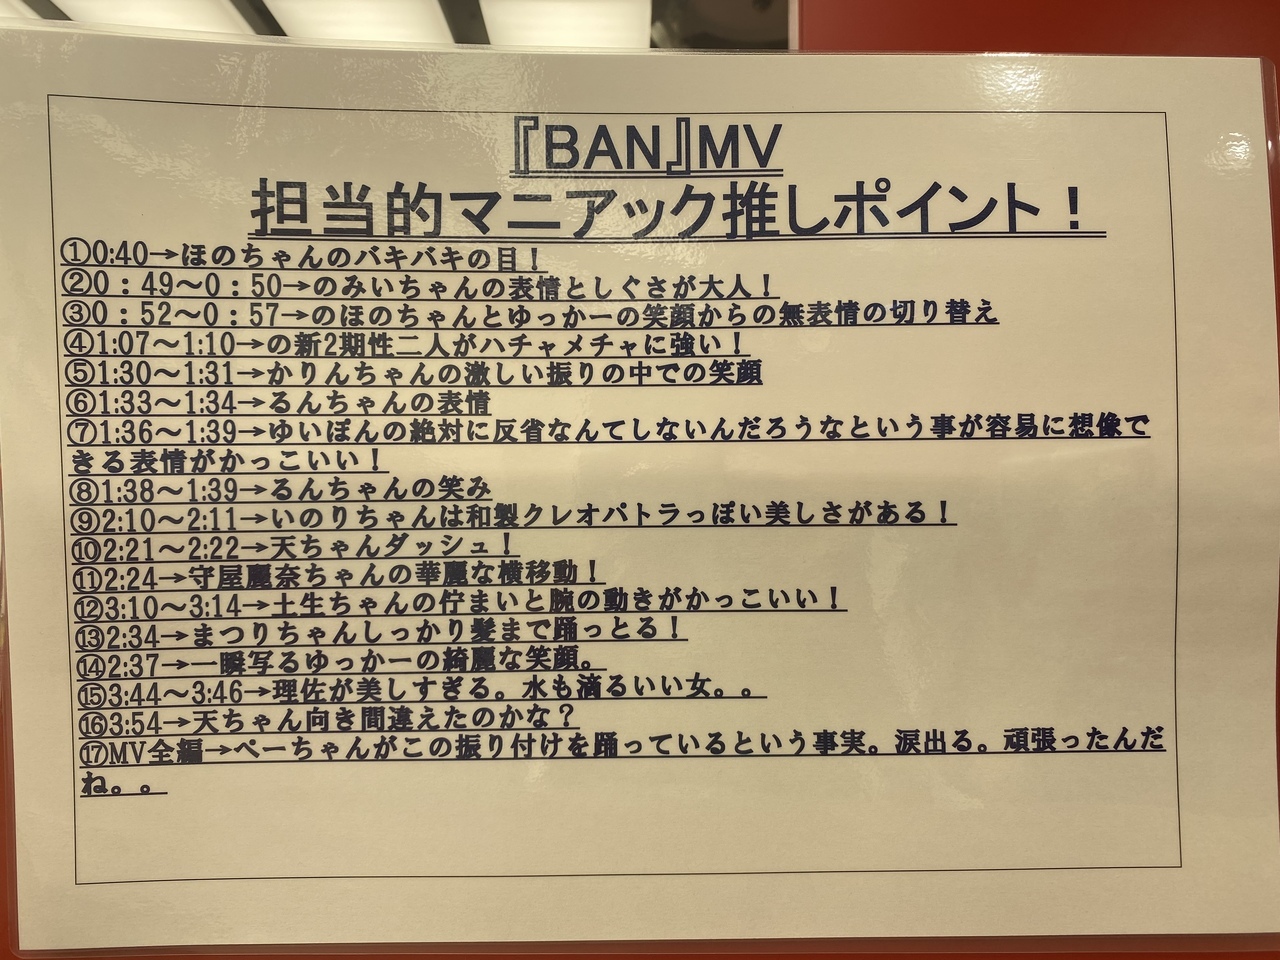 『BAN』MV
担当的マニアック推しポイント！
①0:40→ほのちゃんのバキバキの目！
②0：49～0：50→のみいちゃんの表情としぐさが大人！
③0：52～0：57→のほのちゃんとゆっかーの笑顔からの無表情の切り替え
④1:07～1:10→の新2期性二人がハチャメチャに強い！
⑤1:30～1:31→かりんちゃんの激しい振りの中での笑顔
⑥1:33～1:34→るんちゃんの表情
⑦1:36～1:39→ゆいぽんの絶対に反省なんてしないんだろうなという事が容易に想像で
きる表情がかっこいい！
⑧1:38～1:39→るんちゃんの笑み
⑨2:10～2:11→いのりちゃんは和製クレオパトラっぽい美しさがある！
⑩2:21～2:22→天ちゃんダッシュ！
⑪2:24→守屋麗奈ちゃんの華麗な横移動！
⑫3:10～3:14→土生ちゃんの佇まいと腕の動きがかっこいい！
⑬2:34→まつりちゃんしっかり髪まで踊っとる！
⑭2:37→一瞬写るゆっかーの綺麗な笑顔。
⑮3:44～3:46→理佐が美しすぎる。水も滴るいい女。。
⑯3:54→天ちゃん向き間違えたのかな？
⑰MV全編→ぺーちゃんがこの振り付けを踊っているという事実。涙出る。頑張ったんだ
ね。。